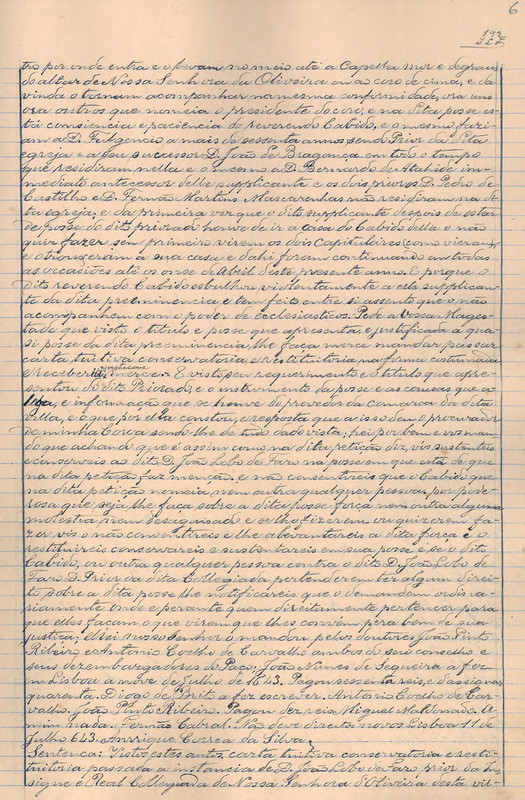 6
192
tro por onde entra e o levam no meio até a Capella mór e degrau
do altar de Nossa Senhora da Oliveira ou ao coro de cima, e da
vinda o tornam acompanhar na mesma conformidade, ora uns
ora outros que nomeia o presidente do coro, e na dita posse es-
tá consciencia e paciencia do reverendo Cabido, e o mesmo fazi-
am a D. Fulgencio a mais de sessenta annos sendo Prior da dita
egreja e a seu successor D. João de Bragança em todo o tempo
que residiram nella e o mesmo a D. Bernardo de Atabide im-
mediato antecessor delle supplicante e os dois priores D. Pedro de
Castilho e D. Fernão Martins Mascarenhas não residiram na di-
ta egreja; e da primeira vez que o dito supplicante depois de estar
de posse do dito priorado houve de ir a casa do Cabido della o não
quiz fazer sem primeiro virem os dois Capitulares (como vieram)
e o trouxeram á sua casa e dahi foram continuando em todas
as occasiões até os onze de Abril deste presente anno. E porque o
Dito reverendo Cabido esbulhou violentamente a elle supplican-
te da dita preeminencia e tem feito entre si assento que o não
acompanhem com o poder de ecclesiasticos. Pede a Vossa Mages-
tade que visto o titulo e posse que apresenta, e justificada a qua-
si posse da dita preeminencia lhe faça merce mandar passar
carta tuitiva conservatoria e restitutoria na forma costumada
e Receberá justiça e merce. E visto seu requerimento e o titulo que apre-
sentou do dito Priorado, e o instrumento da posse e as causas que a-
lega, e informação que se houve do provedor da comarca da dita
villa, e o que por ella constou, e resposta que a isso deu o procurador
de minha Coroa sendo-lhe de tudo dado vista; hei por bem e vos man-
do que achando que é assim como na dita petição diz, vós sustenteis
e conserveis ao dito D. João Lobo de Faro na posse em que está de que
na dita petição faz menção, e não consentireis que o Cabido que
na dita petição nomeia, nem outra qualquer pessoa, por pode-
rosa que seja lhe faça sobre a dita posse força nem outra alguma
molestia, nem desaguisado e se lho fizerem, ou quizerem fa-
zer vós o não consentireis e lhe alevantareis a dita força e o
restituireis conservareis e sustentareis em sua posse e se o dito
Cabido, ou outra qualquer pessoa contra o dito D. João Lobo de
Faro D. Prior da dita Collegiada pertenderem ter algum direi-
to sobre a dita posse lhe notificareis que o demandem ordina-
riamente onde e perante quem direitamente pertencer, para
que elles façam o que virem que lhes convém pera bem de sua
justiça; el-rei nosso senhor o mandou pelos doutores João Pinto
Ribeiro e Antonio Coelho de Carvalho ambos do seu conselho e
seus dezembargadores do Paço; João Nunes de Sequeira a fez
em Lisboa a nove de Julho de 1643. Pagou sessenta reis, e d'assignar
quarenta. Diogo de Brito a fez escrever. Antonio Coelho de Car-
valho. João Pinto Ribeiro. Pagou dez reis Miguel Maldonado. A-
minada. Fernão Cabral. Não deve direitos novos Lisboa 11 de
Julho 643. Anrrique Correa da Silva.
Sentença: Vistos estes autos, carta tuitiva conservatoria e resti-
tutoria passada a instancia de D. João Lobo de Faro, prior da In-
signe e Real Collegiada de Nossa Senhora d'Oliveira desta vil-